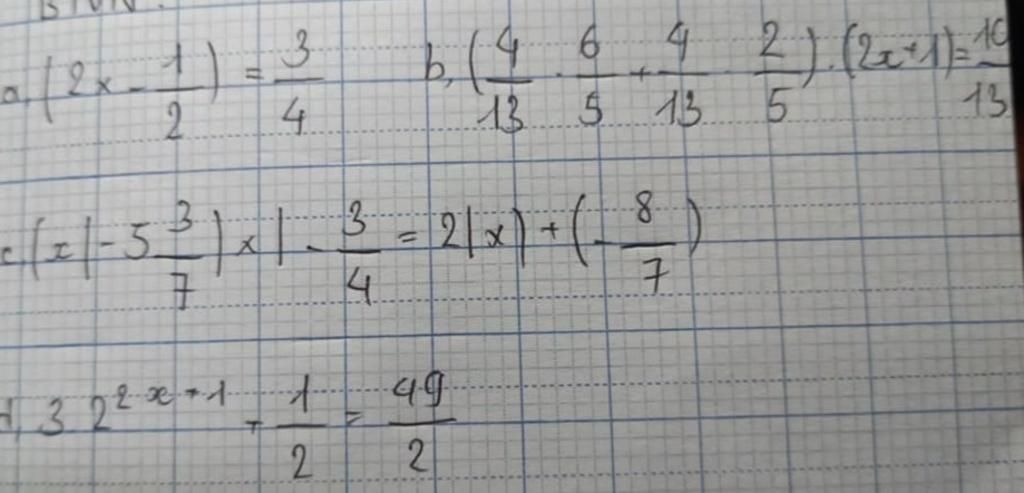 a, (2x - 1/2) = 3/4 b, (4/13 · 6/5 + 4/13 · 2/5) · (2x+1) = 10/13
c |x| - 5 3/7 |x| - 3/4 = 2|x| + (- 8/7)
d, 3 2^{2x+1} - 1/2 = 49/2